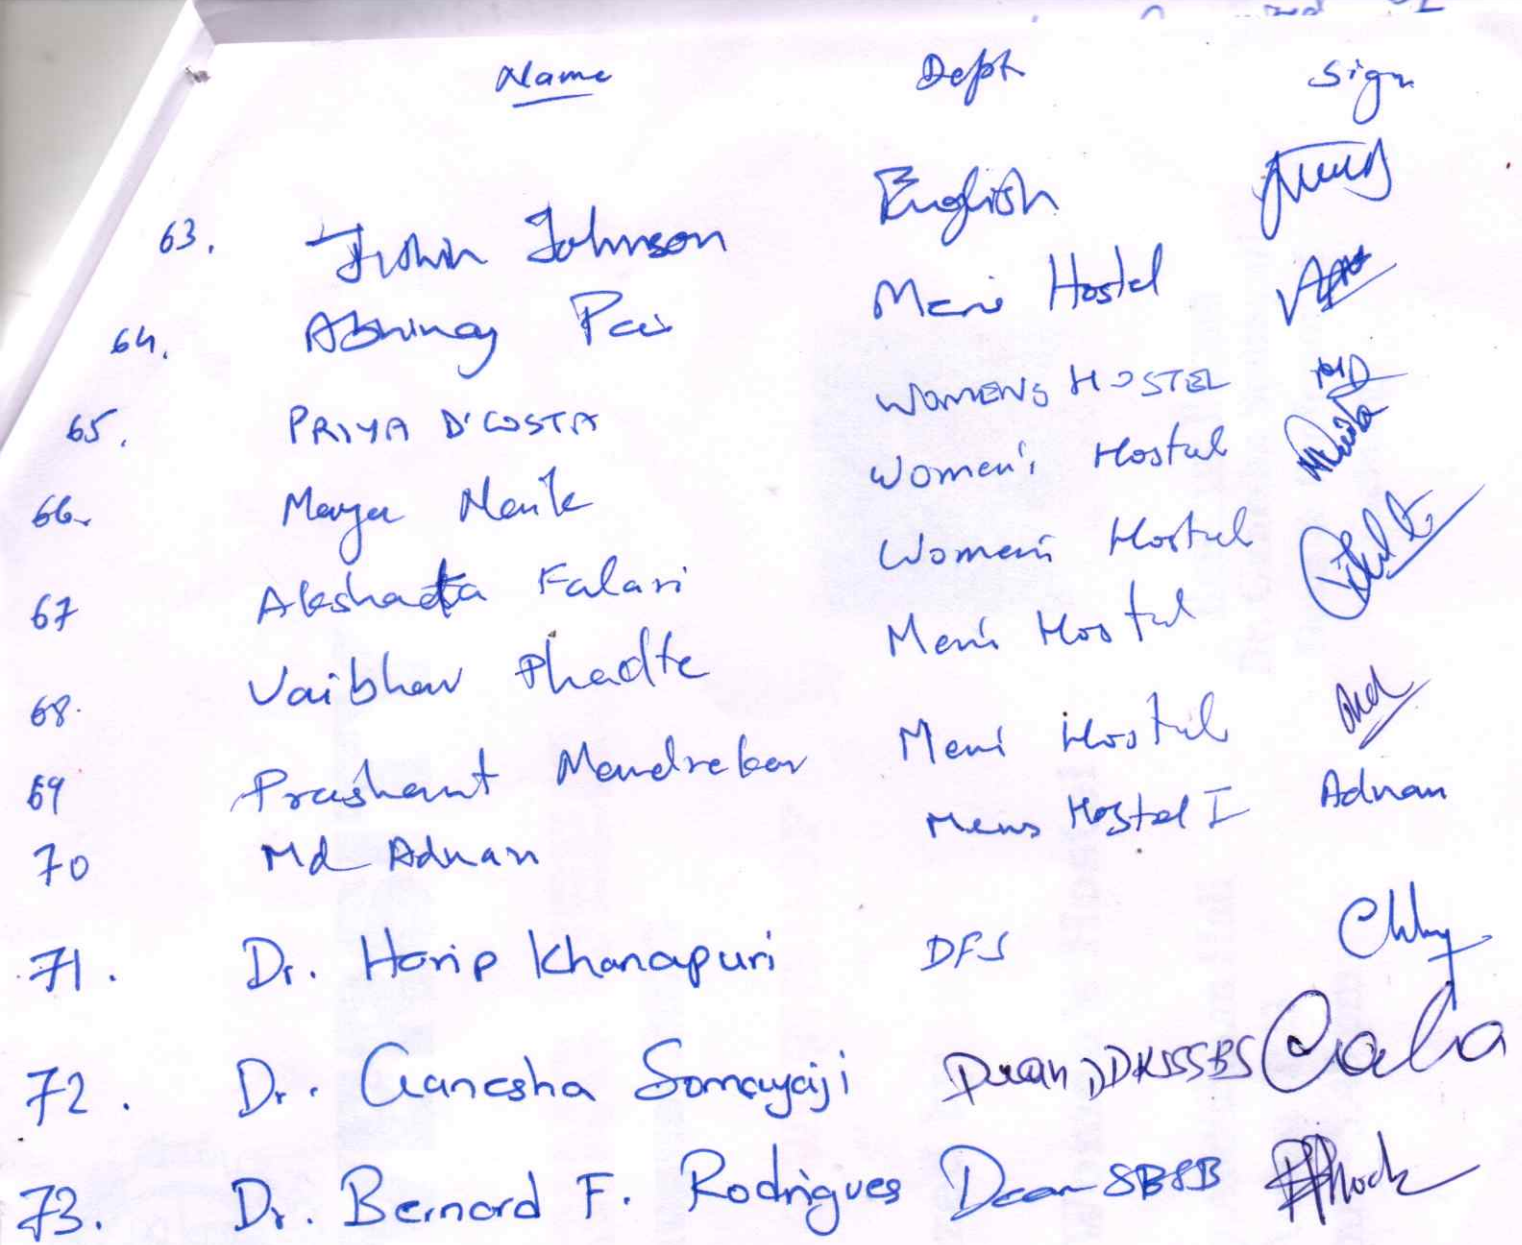 Name Dept Sign
63. Johnson English
64. Abhinay Pai Mens Hostel
65. PRIYA D'COSTA WOMENS HOSTEL
66. Maya Naik Women's Hostel
67 Akshata Falari Women's Hostel
68. Vaibhav Phadte Men's Hostel
69 Prashant Mandrekar Men's Hostel
70 Md Adnan Mens Hostel I Adnan
71. Dr. Harip Khanapuri DFS
72. Dr. Ganesha Somayaji Dean, DDKSSBS
73. Dr. Bernard F. Rodrigues Dean SBSB